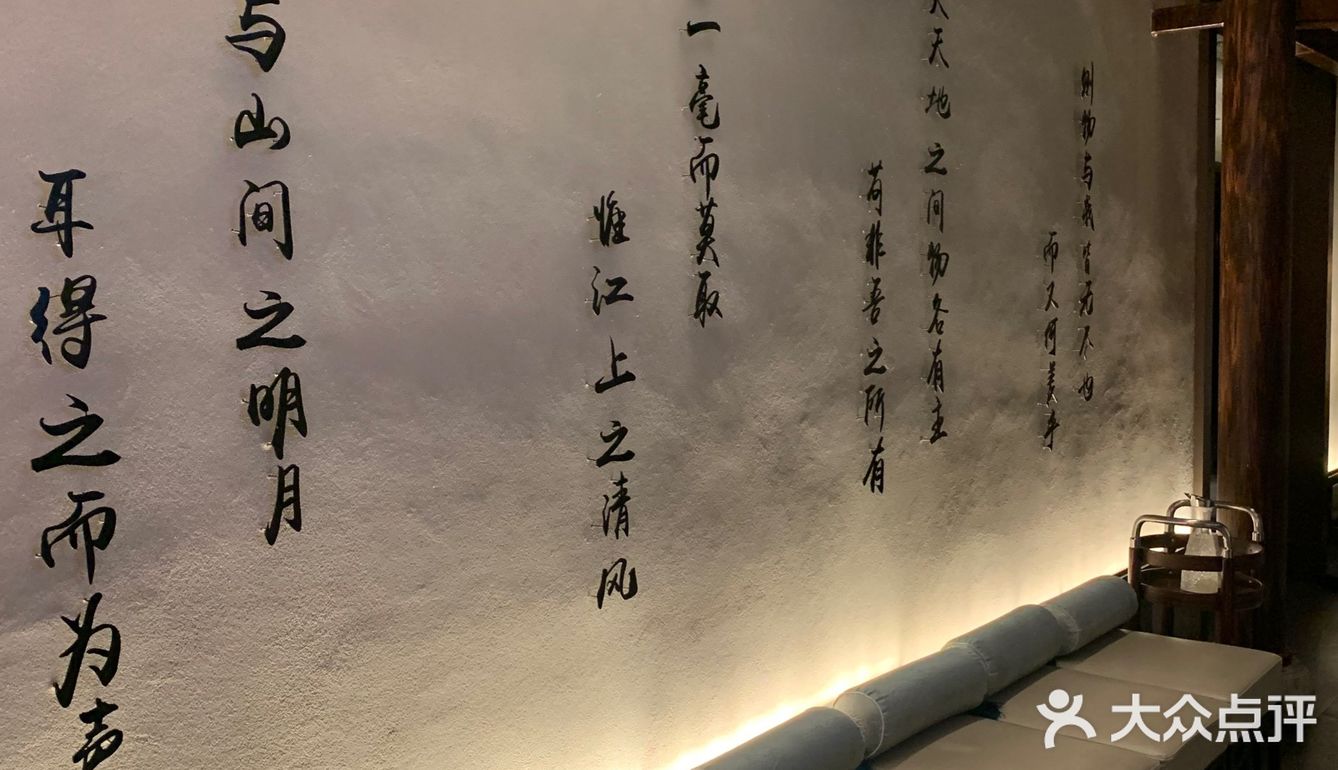 则物与我皆无尽也
而又何羡乎
夫天地之间物各有主
苟非吾之所有
一毫而莫取
惟江上之清风
与山间之明月
耳得之而为声
大众点评